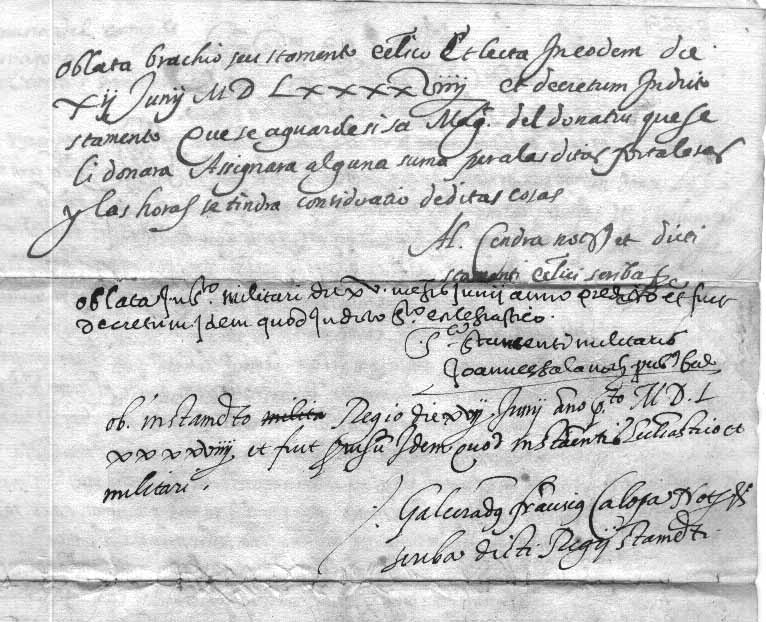 oblata brachio seu stamento ecl̃ico Et lecta In eodem die
xij Junij M D L x x x x viiij et decretum In dicto
stamento Que se aguarde si sa Mag.ᵗ del donatiu que se
li donara Assignara alguna suma per a las ditas fortalesas
y las horas se tindra consideratio de ditas cosas
Al. Cendra not.ˢ et dicti
stamenti ecl̃ici scriba
oblata In st.ᵗᵒ militari die xv. mensis Junij anno predicto et fuit
decretum Idem quod In dicto st.ᵗᵒ eclesiastico.
stamenti militaris
Joannes
ob. in stam.ᵗᵒ Regio die xvij Junij año p.ᵗᵒ M. D. L
x x x x viiij et fuit Idem quod in stamentis Ecclesiastico et
militari.
franciscus Not.ˢ
scriba dicti Regij stamẽti